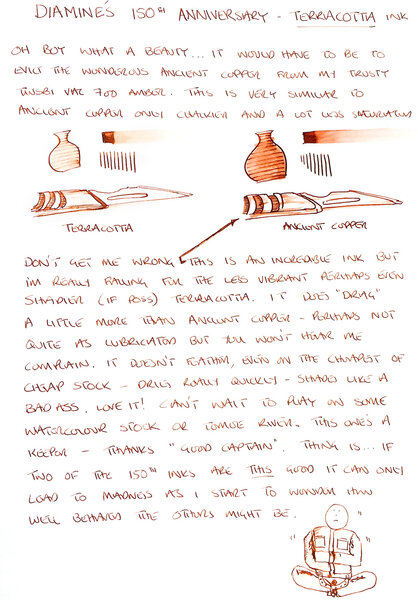 DIAMINE'S 150TH ANNIVERSARY - TERRACOTTA INK
OH BOY WHAT A BEAUTY... IT WOULD HAVE TO BE TO
EVICT THE WONDEROUS ANCIENT COPPER FROM MY TRUSTY
TWSBI VAC 700 AMBER. THIS IS VERY SIMILAR TO
ANCIENT COPPER ONLY CHALKIER AND A LOT LESS SATURATED
TERRACOTTA
ANCIENT COPPER
DON'T GET ME WRONG THIS IS AN INCREDIBLE INK BUT
I'M REALLY FALLING FOR THE LESS VIBRANT PERHAPS EVEN
SHADIER (IF POSS) TERRACOTTA. IT DOES "DRAG"
A LITTLE MORE THAN ANCIENT COPPER - PERHAPS NOT
QUITE AS LUBRICATED BUT YOU WON'T HEAR ME
COMPLAIN. IT DOESN'T FEATHER, EVEN ON THE CHEAPEST OF
CHEAP STOCK - DRIES REALLY QUICKLY - SHADES LIKE A
BAD ASS. LOVE IT! CAN'T WAIT TO PLAY ON SOME
WATERCOLOUR STOCK OR TOMOE RIVER. THIS ONE'S A
KEEPER - THANKS "GOOD CAPTAIN". THING IS... IF
TWO OF THE 150TH INKS ARE THIS GOOD IT CAN ONLY
LEAD TO MADNESS AS I START TO WONDER HOW
WELL BEHAVED THE OTHERS MIGHT BE.